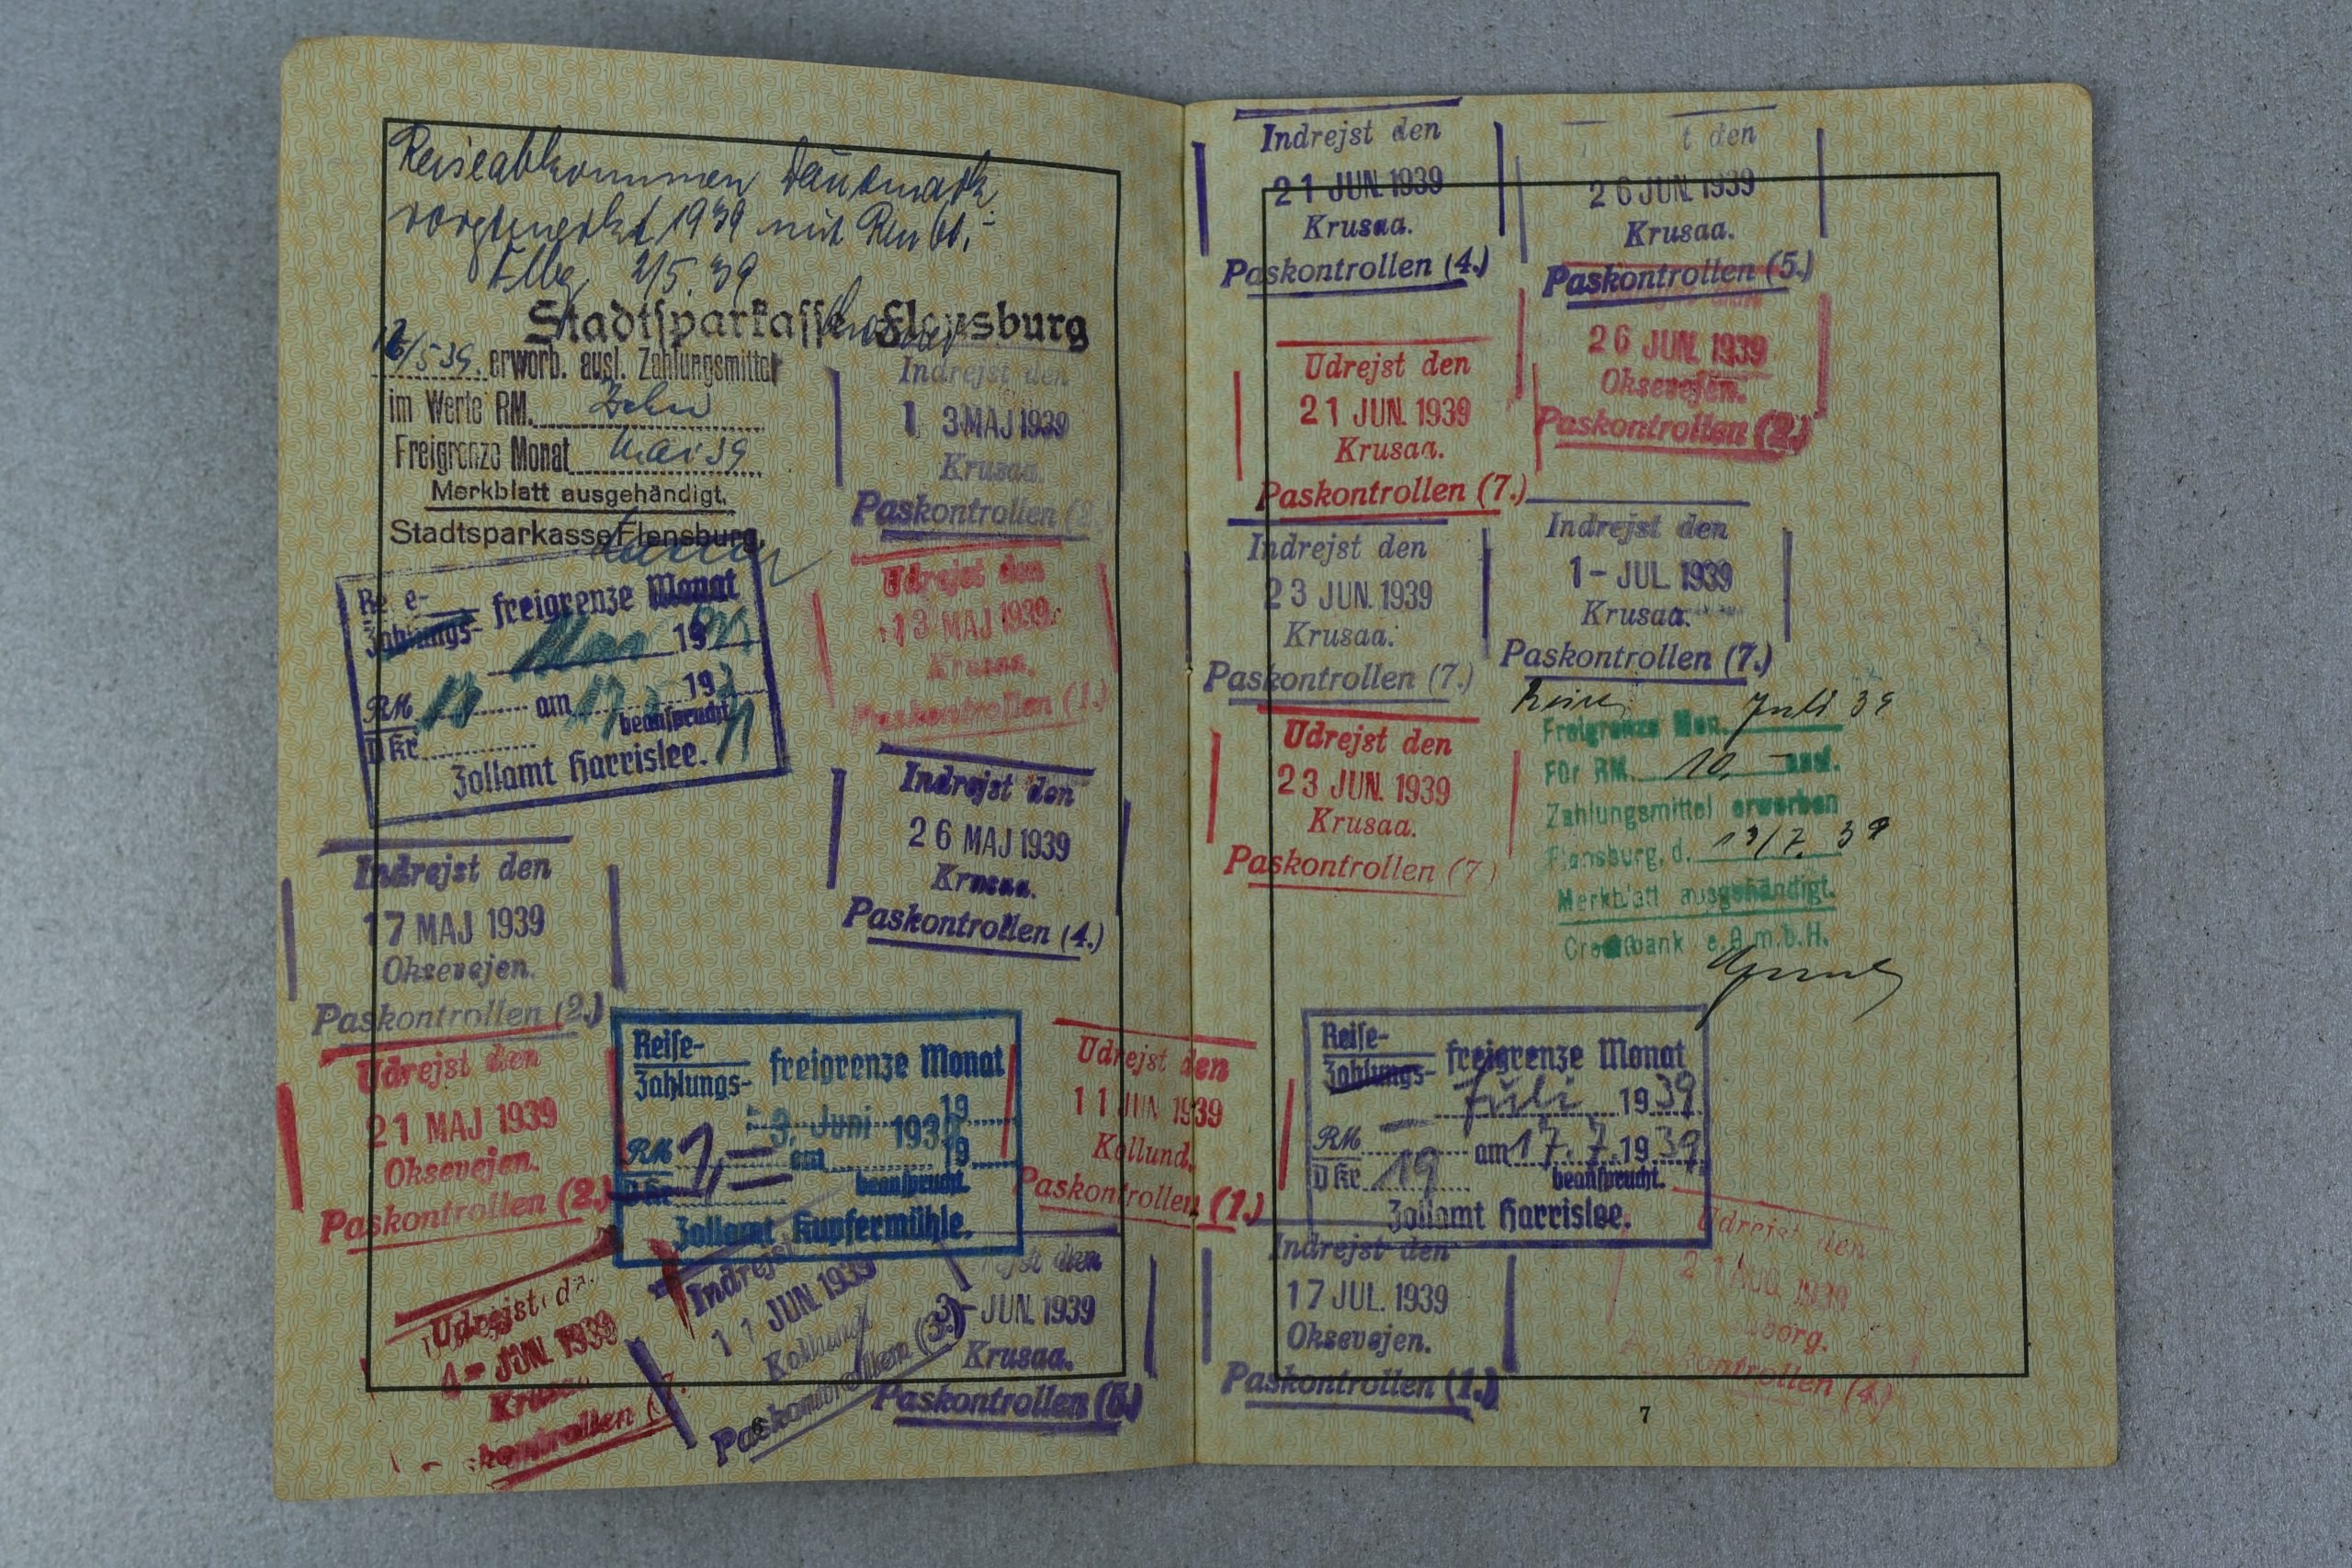 Reiseabkommen Dänemark
vorgemerkt 1939 mit Rm 60,-
Flbg 2/5.39
Stadtsparkasse Flensburg
12/5 39. erworb. ausl. Zahlungsmittel
im Werte RM. Zehn
Freigrenze Monat Mai 39
Merkblatt ausgehändigt.
Stadtsparkasse Flensburg.
Indrejst den
13 MAJ 1939
Krusaa.
Paskontrollen
Udrejst den
13 MAJ 1939
Krusaa.
Paskontrollen (1.)
freigrenze Monat
Zahlungs-
19
RM am 19
D Kr. beansprucht
Zollamt Harrislee.
Indrejst den
26 MAJ 1939
Krusaa.
Paskontrollen (4.)
Indrejst den
17 MAJ 1939
Oksevejen.
Paskontrollen (2.)
Udrejst den
21 MAJ 1939
Oksevejen.
Paskontrollen (2.)
Reise-
Zahlungs- freigrenze Monat
3. Juni 193 19
RM am 19
D Kr. beansprucht.
Zollamt Kupfermühle.
Udrejst den
11 JUN 1939
Kollund.
Paskontrollen (1.)
Udrejst
4- JUN. 1939
Krusaa
kontrollen
Indrejst
11 JUN. 1939
Kollund
Paskontrollen (3.)
den
JUN. 1939
Krusaa.
Paskontrollen
Indrejst den
21 JUN. 1939
Krusaa.
Paskontrollen (4.)
t den
26 JUN. 1939
Krusaa.
Paskontrollen (5.)
Udrejst den
21 JUN. 1939
Krusaa.
Paskontrollen (7.)
26 JUN. 1939
Oksevejen.
Paskontrollen (2.)
Indrejst den
23 JUN. 1939
Krusaa.
Paskontrollen (7.)
Indrejst den
1- JUL. 1939
Krusaa.
Paskontrollen (7.)
Udrejst den
23 JUN. 1939
Krusaa.
Paskontrollen (7.)
Reise
Freigrenze Mon. Juli 39
Für RM. 10.- ausl.
Zahlungsmittel erworben
Flensburg, d. 13/7. 39
Merkblatt ausgehändigt.
Creditbank e.G.m.b.H.
Reise-
Zahlungs- freigrenze Monat
Juli 1939
RM — am 17.7.1939
D Kr. 19 beansprucht.
Zollamt Harrislee.
Indrejst den
17 JUL. 1939
Oksevejen.
Paskontrollen (1.)
Udrejst den
AUG. 1939
borg.
kontrollen (4.)
7